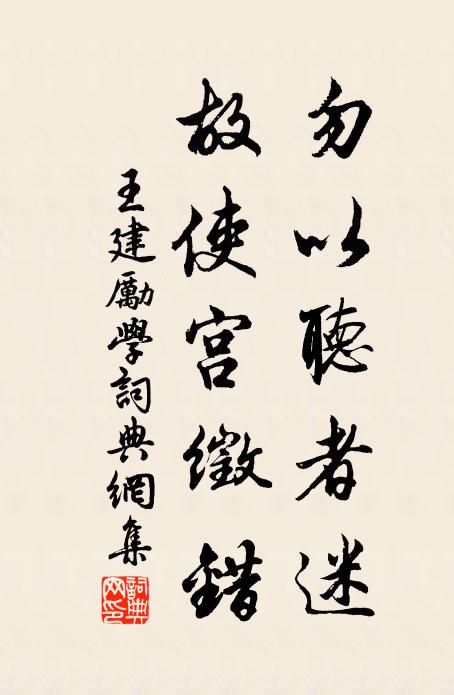 勿以聽者迷
故使宮徵錯
王建勵學詞典網集
詞典網印